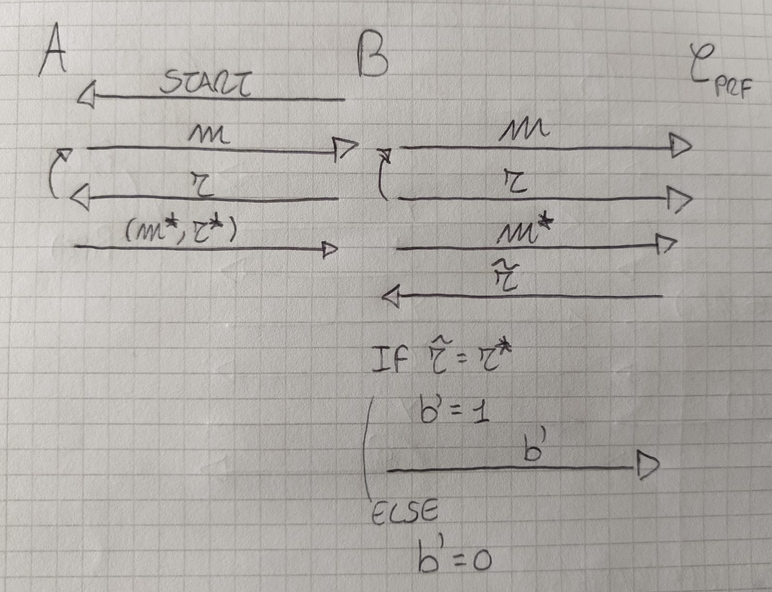 A B 𝒞_PRF
START
m m
τ τ
(m*, τ*) m*
τ̃
If τ̃ = τ*
b' = 1
b'
ELSE
b' = 0